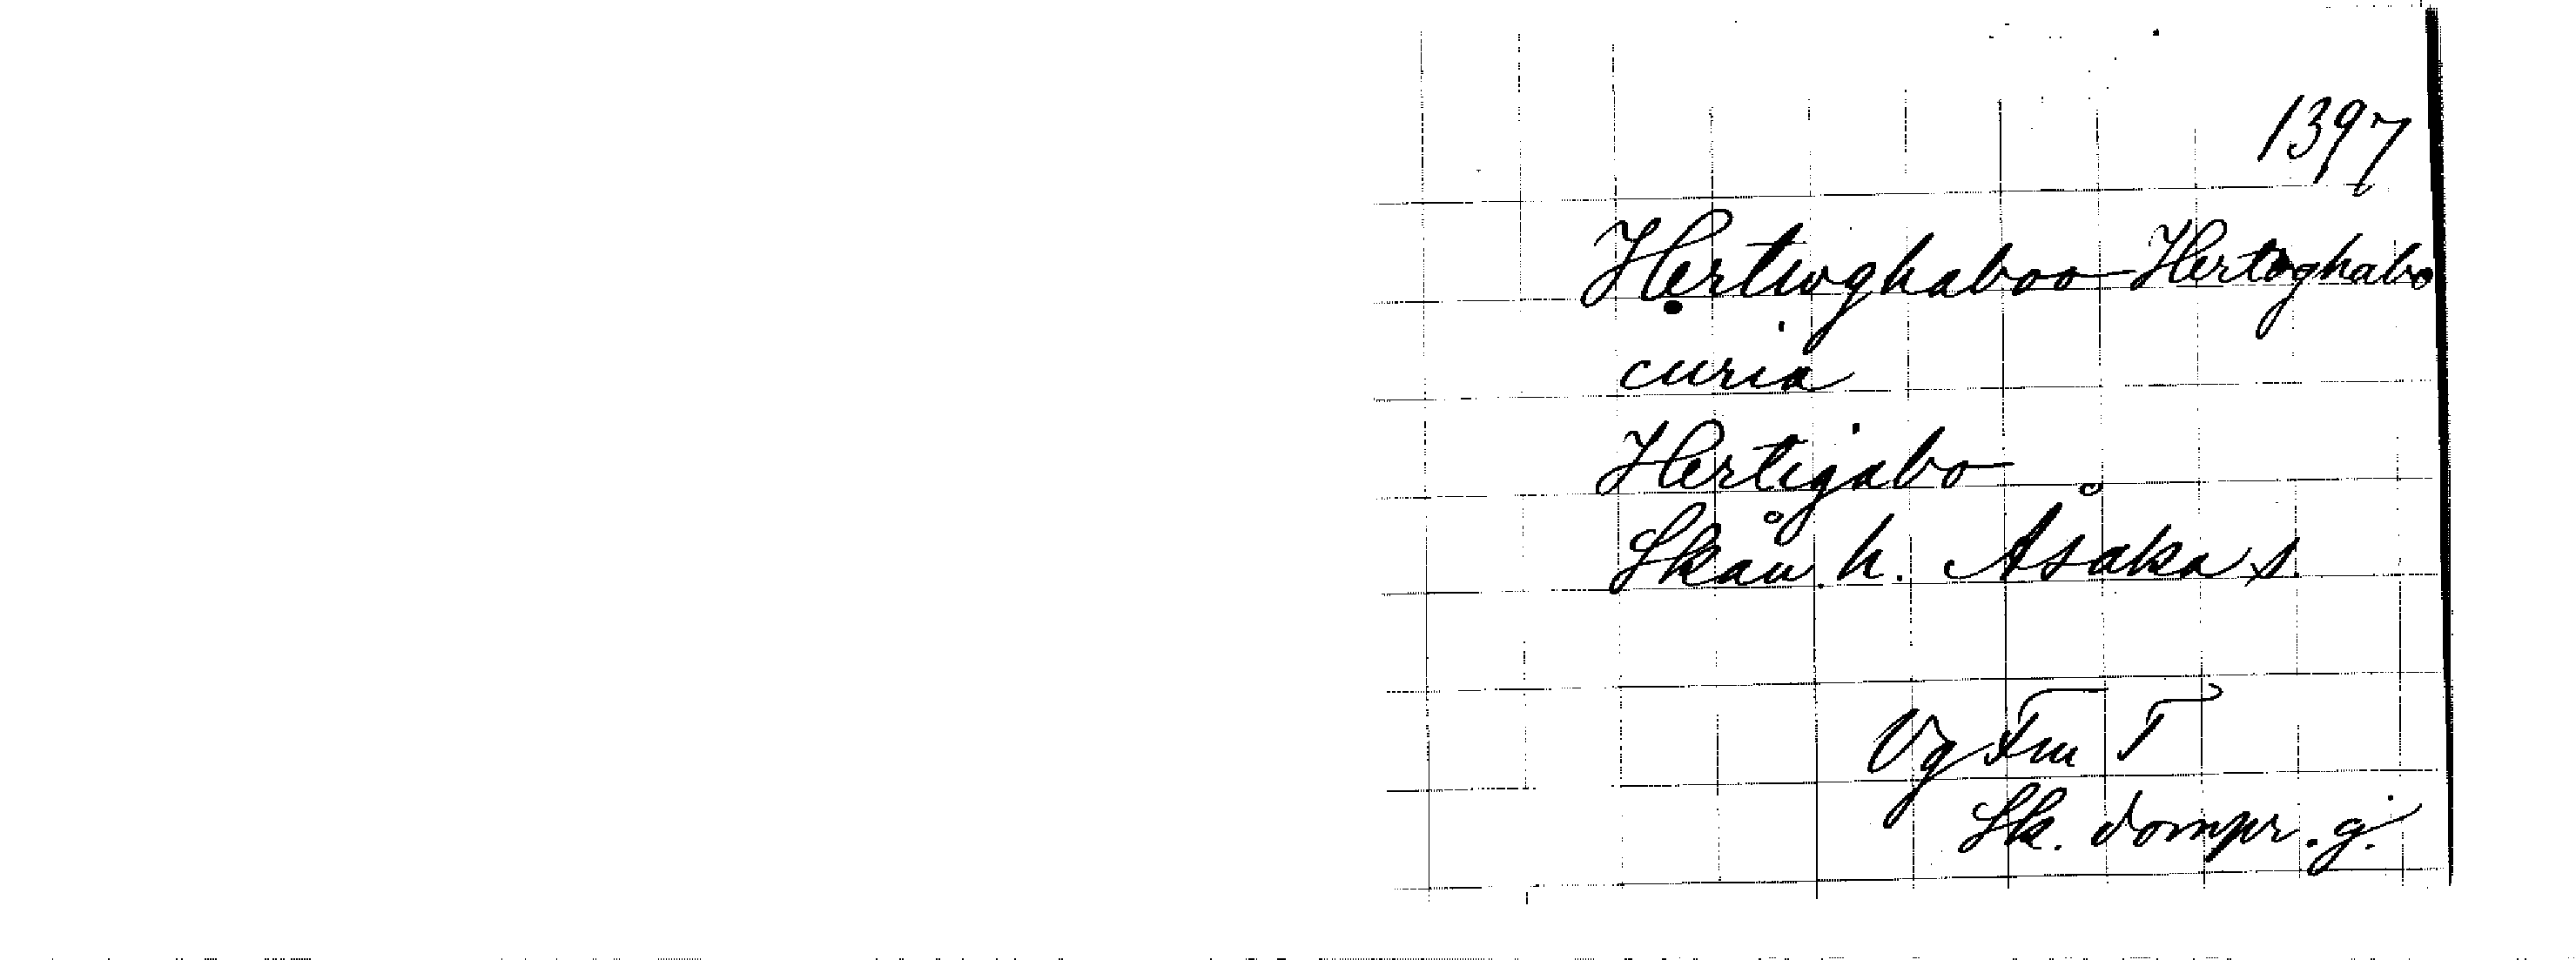 1397
Hertwghaboo Hertoghabo
curia
Hertigabo
Skån. h. Åsaka s.
Vg Fru T
Sk. dompr. g.